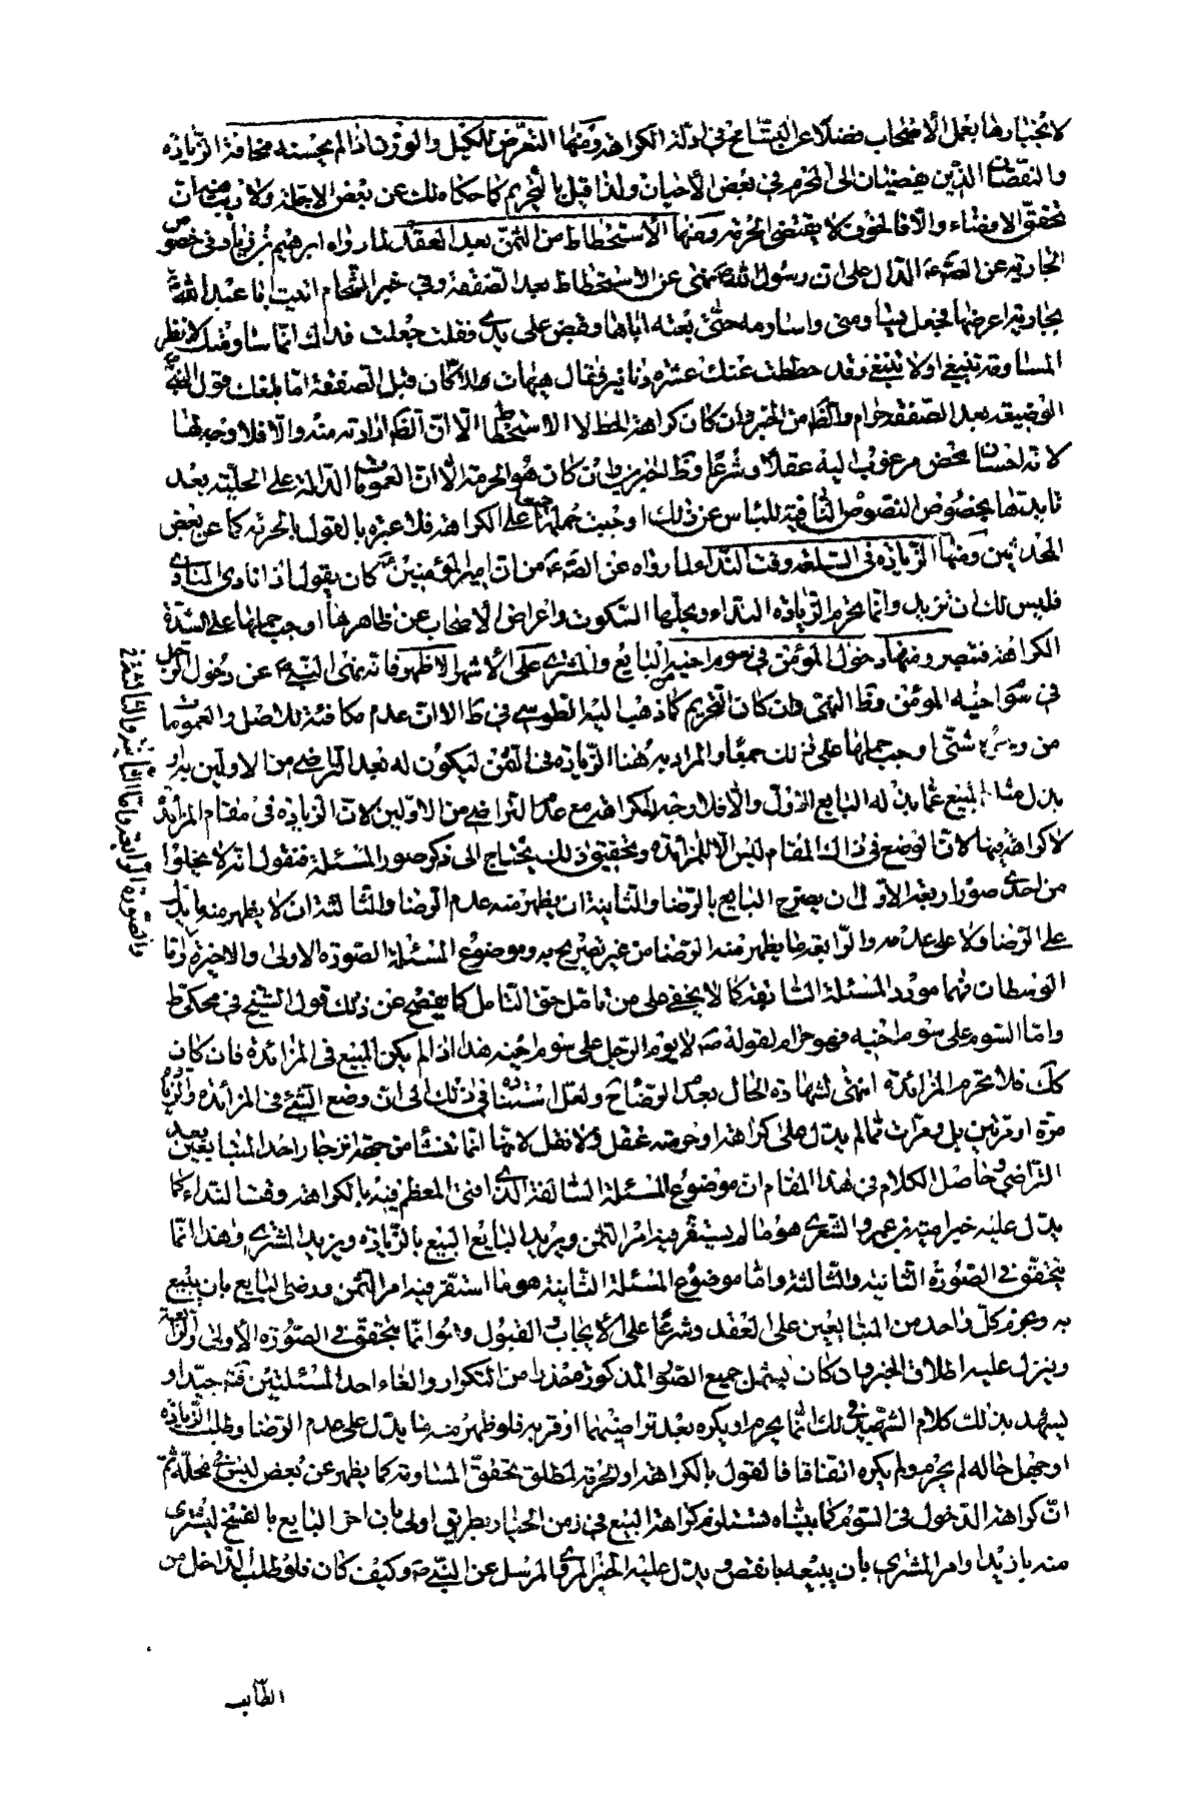 لانجبارها بعمل الأصحاب فضلا عن التسامح في ادلة الكراهة ومنها التعرض للكيل والوزن اذا لم يحسنه مخافة الزيادة
والنقصان الذين يفضيان الى المحرم في بعض الأحيان ولذا قيل بالتحريم كما حكاه ذلك عن بعض الاجلة ولا ريب فيه ان
تحقق الافضاء والا فالخوف لا يقتضي الحرمة ومنها الاستحطاط من الثمن بعد العقد لما رواه ابرهيم بن زياد في خصوص
الجارية عن الصادق الدال على ان رسول الله نهى عن الاستحطاط بعد الصفقة وفي خبر الشحام اتيت ابا عبد الله
بجارية اعرضها فجعل يساومني واساومه حتى بعته اياها وقبض على يدي فقلت جعلت فداك انما ساومتك لانظر
المساومة تنبغي او لا تنبغي وقد حططت عنك عشرة دنانير فقال هيهات الا كان قبل الصفقة اما بلغك قول النبي
الوضيعة بعد الصفقة حرام والظ من الخبر وان كان كراهة الحط لا الاستحطاط الا ان الظ ارادته منه والا فلا وجه لها
لانه احسان محض مرغوب اليه عقلا وشرعا وظ الخبرين وان كان هو الحرمة الا ان العمومات الدالة على الحلية بعد
تأيدها بخصوص النصوص النافية للبأس عن ذلك اوجبت حملها على الكراهة فلا عبرة بالقول بالحرمة كما عن بعض
المحدثين ومنها الزيادة في السلعة وقت النداء لما رواه عن الص من ان امير المؤمنين كان يقول اذا نادى المنادي
فليس لك ان تزيد وانما يحرم الزيادة النداء ويحلها السكوت واعراض الأصحاب عن ظاهرها اوجب حملها على شدة
الكراهة فتبصر ومنها دخول المؤمن في سوم اخيه البايع والمشتري على الأشهر الاظهر فانه نهى النبي عن دخول الرجل
في سوم اخيه المؤمن وظ النهي وان كان التحريم كما ذهب اليه الطوسي في ط الا ان عدم مكافئة للاصل والعمومات
من وجوه شتى اوجب حملها على ذلك جمعا والمراد به هنا الزيادة في الثمن ليكون له بعد التراضي من الاولين به او
بذل مشا المبيع عما بذل له البايع الاول والا فلا وجه للكراهة مع عدم التراضي من الاولين لان الزيادة في مقام المزايدة
لا كراهة فيها لان الوضع في ذلك المقام ليس الا للمزايدة وتحقيق ذلك يحتاج الى ذكر صور المسئلة فنقول انه لا يخلوا
من احدى صور اربعة الاولى ان يصرح البايع بالرضا والثانية ان يظهر منه عدم الرضا والثالثة ان لا يظهر منه ما يدل
على الرضا ولا على عدمه والرابعة ما يظهر منه الرضا من غير تصريح به وموضوع المسئلة الصورة الاولى والاخيرة واما
الوسطان فهما مورد المسئلة السابقة كما لا يخفى على من تامل حق التامل كما يفصح عن ذلك قول الشيخ في محكي ط
واما السوم على سوم اخيه فهو حرام لقوله ص لا يسوم الرجل على سوم اخيه هذا اذا لم يكن المبيع في المزايدة فان كان
كك فلا تحرم المزايدة انتهى لشهادة الحال بعدم الرضا ح ولعل استنادنا في ذلك الى ان وضع الشئ في المزايدة والزيادة
مرة او مرتين بل ومرات مما لم يدل على كراهته او حرمته عقل ولا نقل لانها انما تنشأ من جهة انزجار احد المتبايعين بعد
التراضي وحاصل الكلام في هذا المقام ان موضوع المسئلة السابقة الذي افتى المعظم فيه بالكراهة وقت النداء كما
يدل عليه خبر امية بن عمرو الشعيري هو ما لم يستقر فيه امر الثمن ويريد البايع البيع بالزيادة ويزيد المشتري وهذا انما
يتحقق في الصورة الثانية والثالثة واما موضوع المسئلة الثانية هو ما استقر فيه امر الثمن ورضى البايع بان يبيع
به وعزم كل واحد من المتبايعين على العقد وشرعا على الأيجاب والقبول وهو انما يتحقق في الصورة الأولى والرابعة
وينزل عليه اطلاق الخبر وان كان يشمل جميع الصور المذكورة حذرا من التكرار والغاء احد المسئلتين فتامل جيدا و
يشهد بذلك كلام الشهيد في ذلك انما يحرم او يكره بعد تراضيهما او قربه فلو ظهر منه ما يدل على عدم الرضا وطلب الزيادة
او جهل حاله لم يحرم ولم يكره اتفاقا فالقول بالكراهة او الحرمة لمطلق تحقق المساومة كما يظهر عن بعض ليس في محله ثم
ان كراهة الدخول في السوم كما بيناه تستلزم كراهة البيع في زمن الخيار بطريق اولى بان اخر البايع بالفسخ ليشتري
منه بازيد او امر المشتري بان يبيعه بانقص ويدل عليه الخبر المروي المرسل عن النبي ص وكيف كان فلو طلب الداخل من
والصورة الرابعة واما الثانية والثالثة
الطالب